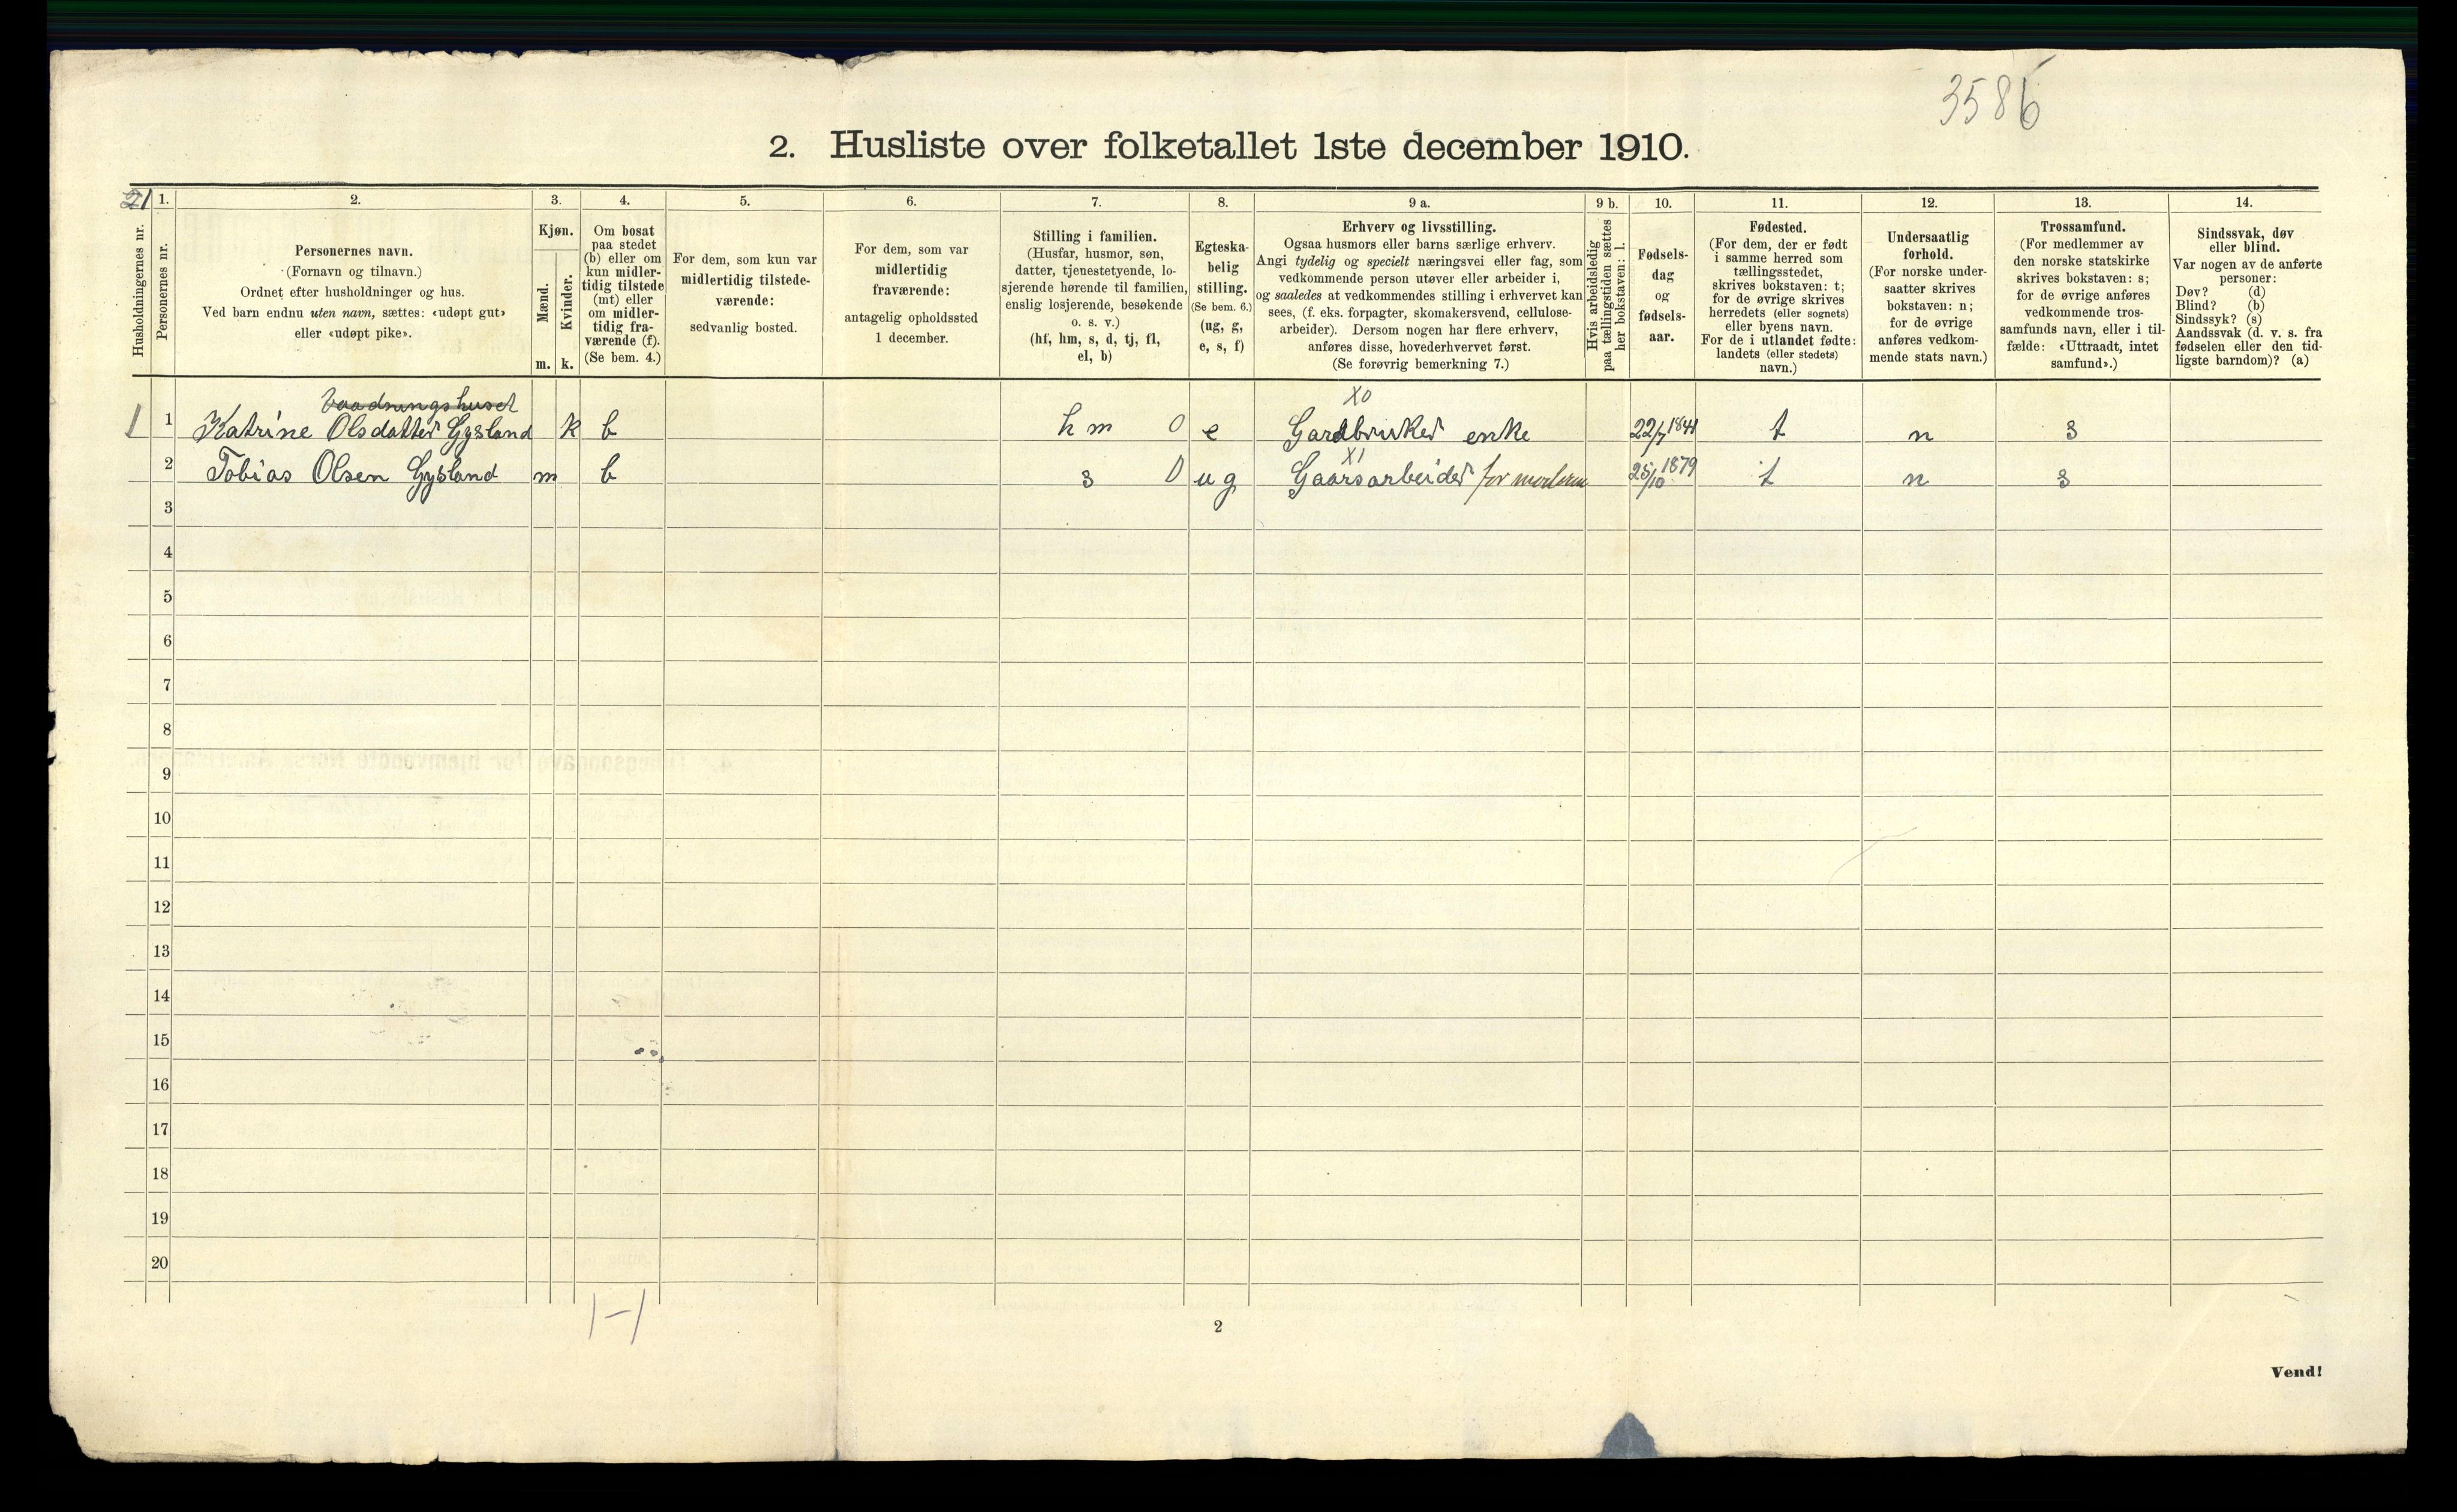 3586
2. Husliste over folketallet 1ste december 1910.
21
Husholdningernes nr.
1.
Personernes nr.
2.
Personernes navn.
(Fornavn og tilnavn.)
Ordnet efter husholdninger og hus.
Ved barn endnu uten navn, sættes: «udøpt gut»
eller «udøpt pike».
3.
Kjøn.
Mænd.
Kvinder.
m. k.
4.
Om bosat
paa stedet
(b) eller om
kun midler-
tidig tilstede
(mt) eller
om midler-
tidig fra-
værende (f).
(Se bem. 4.)
5.
For dem, som kun var
midlertidig tilstede-
værende:
sedvanlig bosted.
6.
For dem, som var
midlertidig
fraværende:
antagelig opholdssted
1 december.
7.
Stilling i familien.
(Husfar, husmor, søn,
datter, tjenestetyende, lo-
sjerende hørende til familien,
enslig losjerende, besøkende
o. s. v.)
(hf, hm, s, d, tj, fl,
el, b)
8.
Egteska-
belig
stilling.
(Se bem. 6.)
(ug, g,
e, s, f)
9 a.
Erhverv og livsstilling.
Ogsaa husmors eller barns særlige erhverv.
Angi tydelig og specielt næringsvei eller fag, som
vedkommende person utøver eller arbeider i,
og saaledes at vedkommendes stilling i erhvervet kan
sees, (f. eks. forpagter, skomakersvend, cellulose-
arbeider). Dersom nogen har flere erhverv,
anføres disse, hovederhvervet først.
(Se forøvrig bemerkning 7.)
9 b.
Hvis arbeidsledig
paa tællingstiden sættes
her bokstaven: l.
10.
Fødsels-
dag
og
fødsels-
aar.
11.
Fødested.
(For dem, der er født
i samme herred som
tællingsstedet,
skrives bokstaven: t;
for de øvrige skrives
herredets (eller sognets)
eller byens navn.
For de i utlandet fødte:
landets (eller stedets)
navn.)
12.
Undersaatlig
forhold.
(For norske under-
saatter skrives
bokstaven: n;
for de øvrige
anføres vedkom-
mende stats navn.)
13.
Trossamfund.
(For medlemmer av
den norske statskirke
skrives bokstaven: s;
for de øvrige anføres
vedkommende tros-
samfunds navn, eller i til-
fælde: «Uttraadt, intet
samfund».)
14.
Sindssvak, døv
eller blind.
Var nogen av de anførte
personer:
Døv? (d)
Blind? (b)
Sindssyk? (s)
Aandssvak (d. v. s. fra
fødselen eller den tid-
ligste barndom)? (a)
X0
1 1 Katrine Olsdatter Gysland k b hm 0 e Gardbruker enke 22/7 1841 t n s
X1
2 Tobias Olsen Gysland m b s 0 ug Gaarsarbeider for moderen 25/10 1879 t n s
3
4
5
6
7
8
9
10
11
12
13
14
15
16
17
18
19
20
1-1
2
Vend!